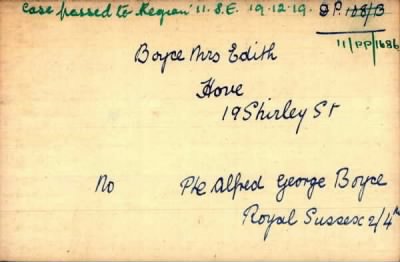 Case passed to Region 11. S.E. 19.12.19. D.P. 168/B
11/PP/1686
Boyce Mrs Edith
Hove
19 Shirley St
No Pte Alfred George Boyce
Royal Sussex 2/4th